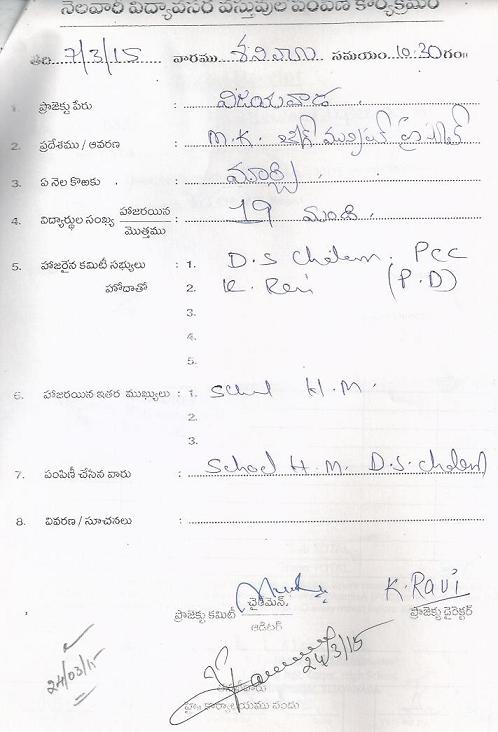 నెలవారి విద్యావసర వస్తువుల పంపిణి కార్యక్రమం
తేది 7/3/15 వారము శనివారం సమయం 10:30 గం॥
1. ప్రాజెక్టు పేరు : విజయవాడ
2. ప్రదేశము / ఆవరణ : M.K. మున్సిపల్ హైస్కూల్
3. ఏ నెల కొఱకు : మార్చి
4. విద్యార్థుల సంఖ్య హాజరయిన మొత్తము : 19 మంది
5. హాజరైన కమిటీ సభ్యులు : 1. D.S Chalem. PCC
హోదాతో 2. K. Ravi (P.D)
3.
4.
5.
6. హాజరయిన ఇతర ముఖ్యులు : 1. School H.M.
2.
3.
7. పంపిణీ చేసిన వారు : School H.M. D.S. Chalem
8. వివరణ / సూచనలు :
K. Ravi
ప్రాజెక్టు కమిటీ చైర్మెన్. ప్రాజెక్టు డైరెక్టర్
ఆడిటర్
24/3/15
24/03/15
కార్యాలయము నందు